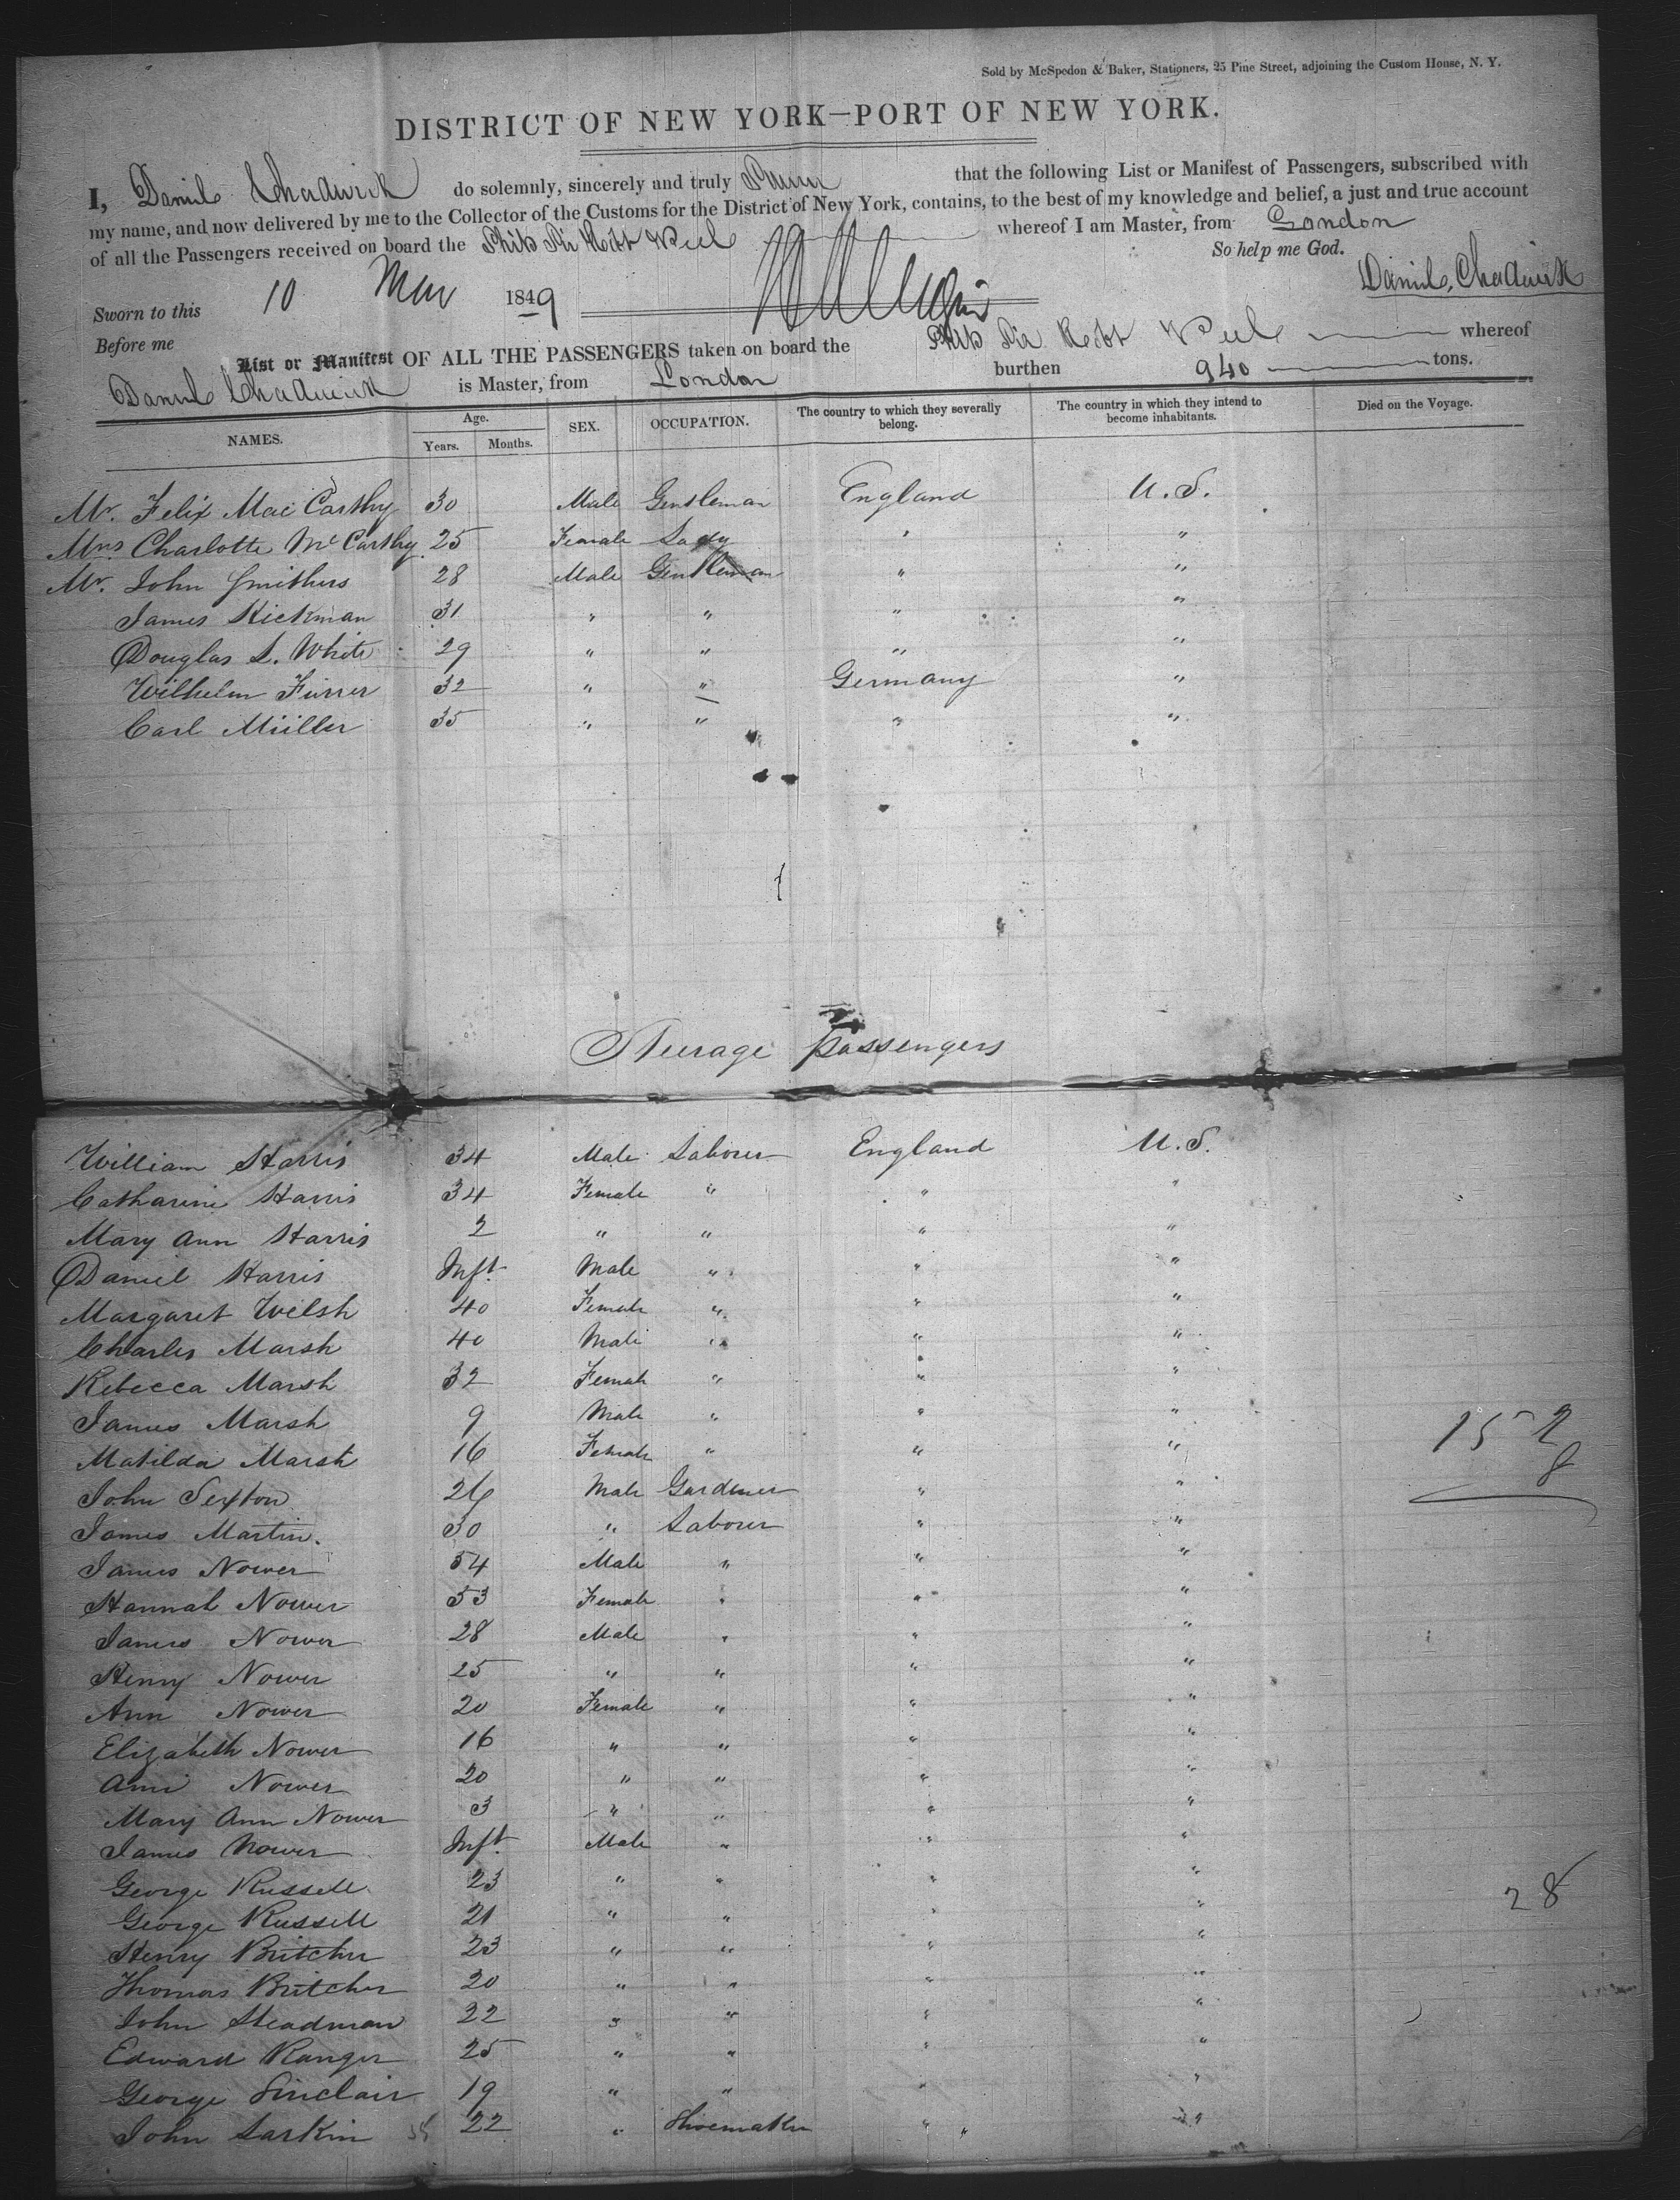 Sold by McSpedon & Baker, Stationers, 25 Pine Street, adjoining the Custom House, N. Y.
DISTRICT OF NEW YORK—PORT OF NEW YORK.
I, Daniel Chadwick do solemnly, sincerely and truly Swear that the following List or Manifest of Passengers, subscribed with
my name, and now delivered by me to the Collector of the Customs for the District of New York, contains, to the best of my knowledge and belief, a just and true account
of all the Passengers received on board the Ship Sir Robt Peel whereof I am Master, from London
So help me God.
Sworn to this 10 May 1849 Daniel Chadwick
Before me
List or Manifest OF ALL THE PASSENGERS taken on board the Ship Sir Robt Peel whereof
Daniel Chadwick is Master, from London burthen 940 tons.
NAMES. Age. Years. Months. SEX. OCCUPATION. The country to which they severally belong. The country in which they intend to become inhabitants. Died on the Voyage.
Mr. Felix Mac Carthy 30 Male Gentleman England U.S.
Mrs Charlotte Mc Carthy 25 Female Lady " "
Mr. John Smithers 28 Male Gentleman " "
James Hickman 31 " " " "
Douglas L. White 29 " " " "
Wilhelm Fürrer 32 " " Germany "
Carl Müller 35 " " " "
Steerage Passengers
William Harris 34 Male Laborer England U.S.
Catharine Harris 34 Female " " "
Mary Ann Harris 2 " " " "
Daniel Harris Inft Male " " "
Margaret Welsh 40 Female " " "
Charles Marsh 40 Male " " "
Rebecca Marsh 32 Female " " "
James Marsh 9 Male " " "
Matilda Marsh 16 Female " " "
152
8
John Sexton 26 Male Gardener " "
James Martin. 30 " Laborer " "
James Nower 54 Male " " "
Hannah Nower 53 Female " " "
James Nower 28 Male " " "
Henry Nower 25 " " " "
Ann Nower 20 Female " " "
Elizabeth Nower 16 " " " "
Ann Nower 20 " " " "
Mary Ann Nower 3 " " " "
James Nower Inft. Male " " "
George Russell 23 " " " "
28
George Russell 21 " " " "
Henry Butcher 23 " " " "
Thomas Butcher 20 " " " "
John Steadman 22 " " " "
Edward Ranger 25 " " " "
George Sinclair 19 " " " "
John Larkin 22 " Shoemaker " "